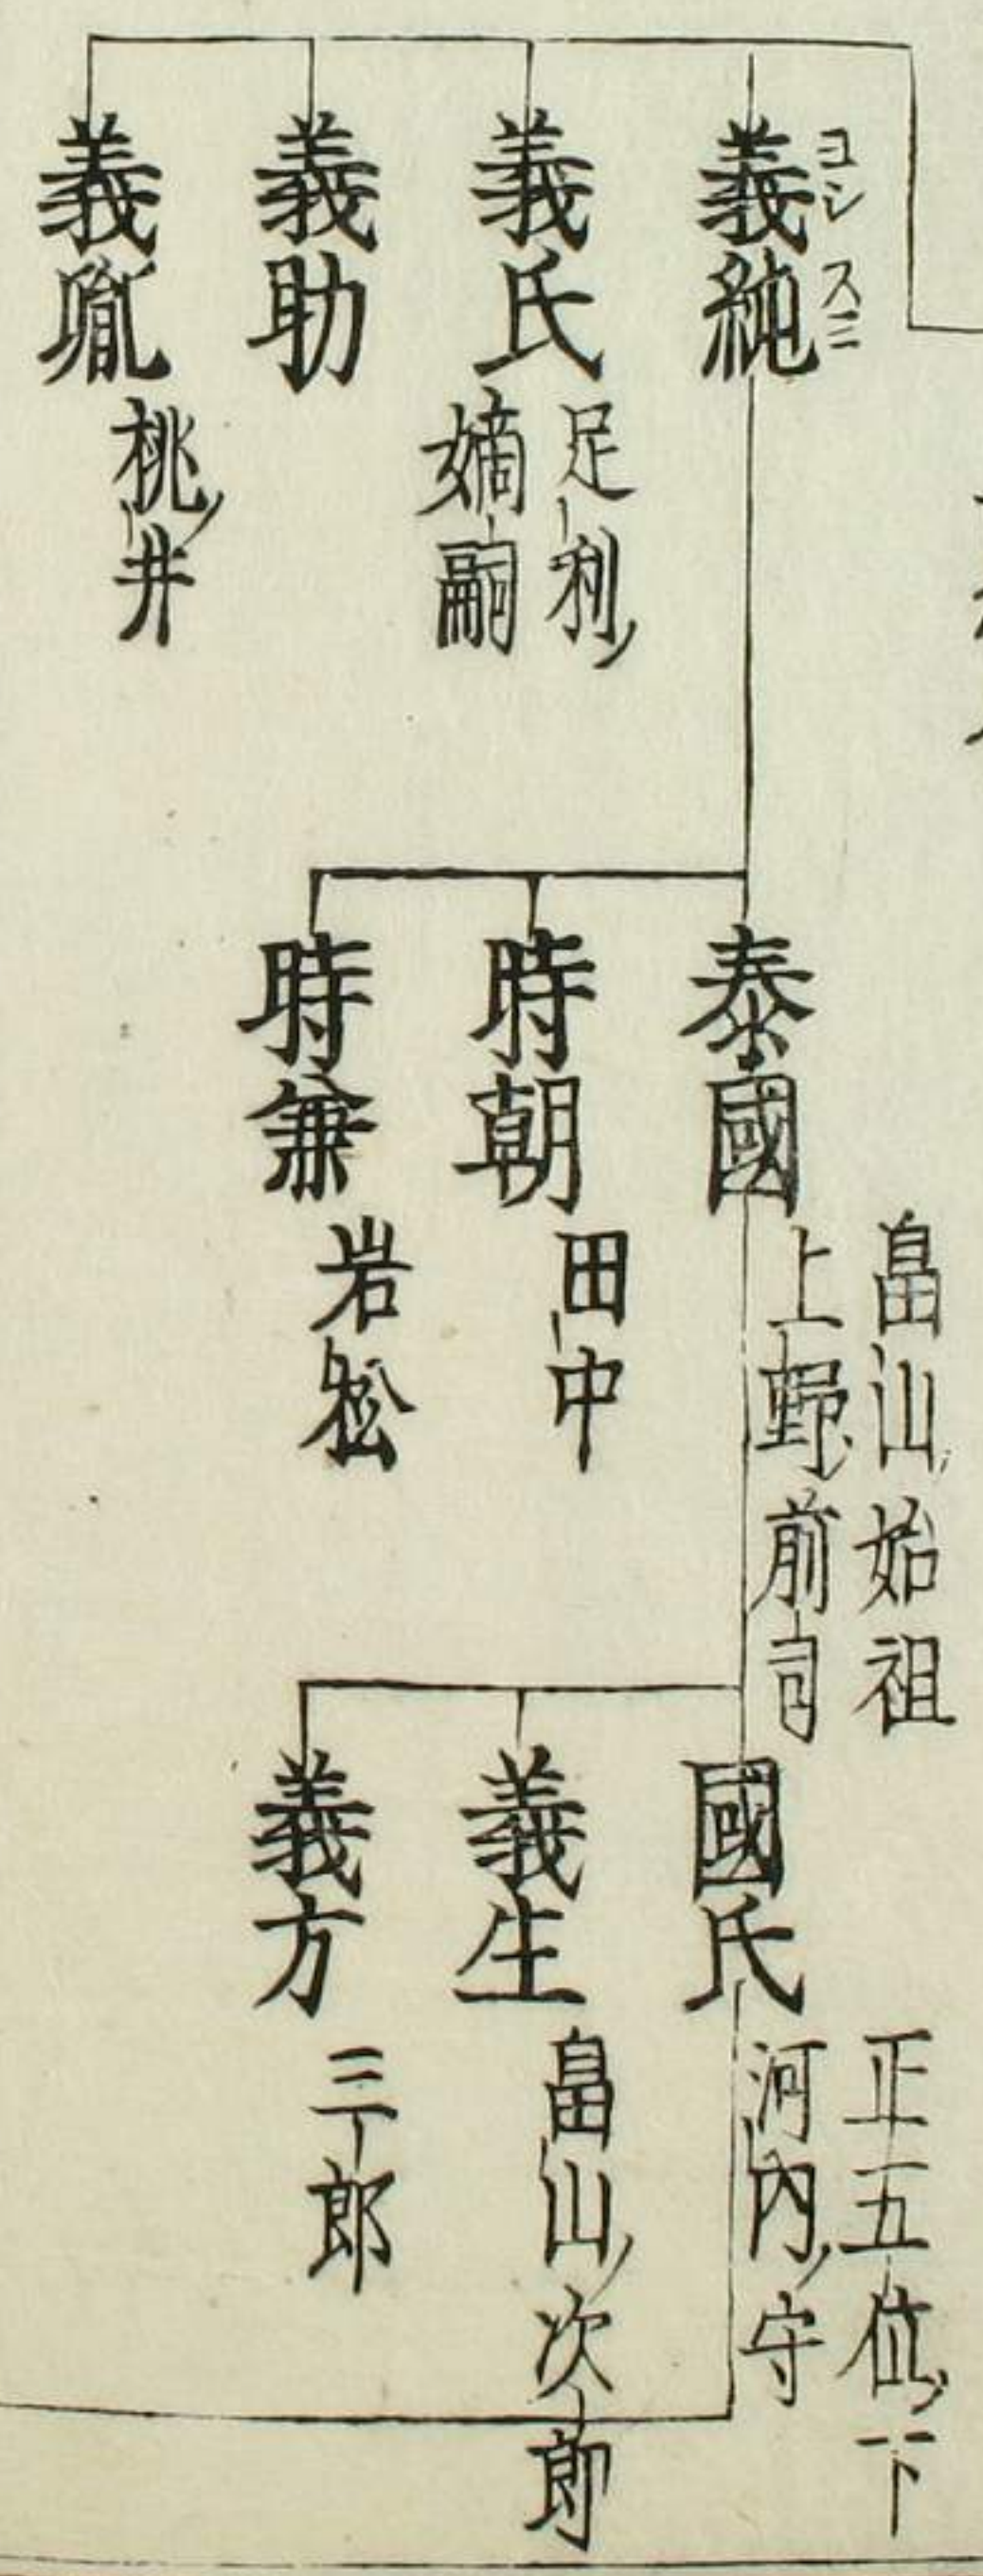 義純
ヨシスミ
義氏
足利ノ
嫡嗣
義助
義胤
桃ノ井
泰國
畠山ノ始祖
上野ノ前司
時朝
田中
時兼
岩松
國氏
正五位ノ下
河内ノ守
義生
畠山ノ次郎
義方
三郎